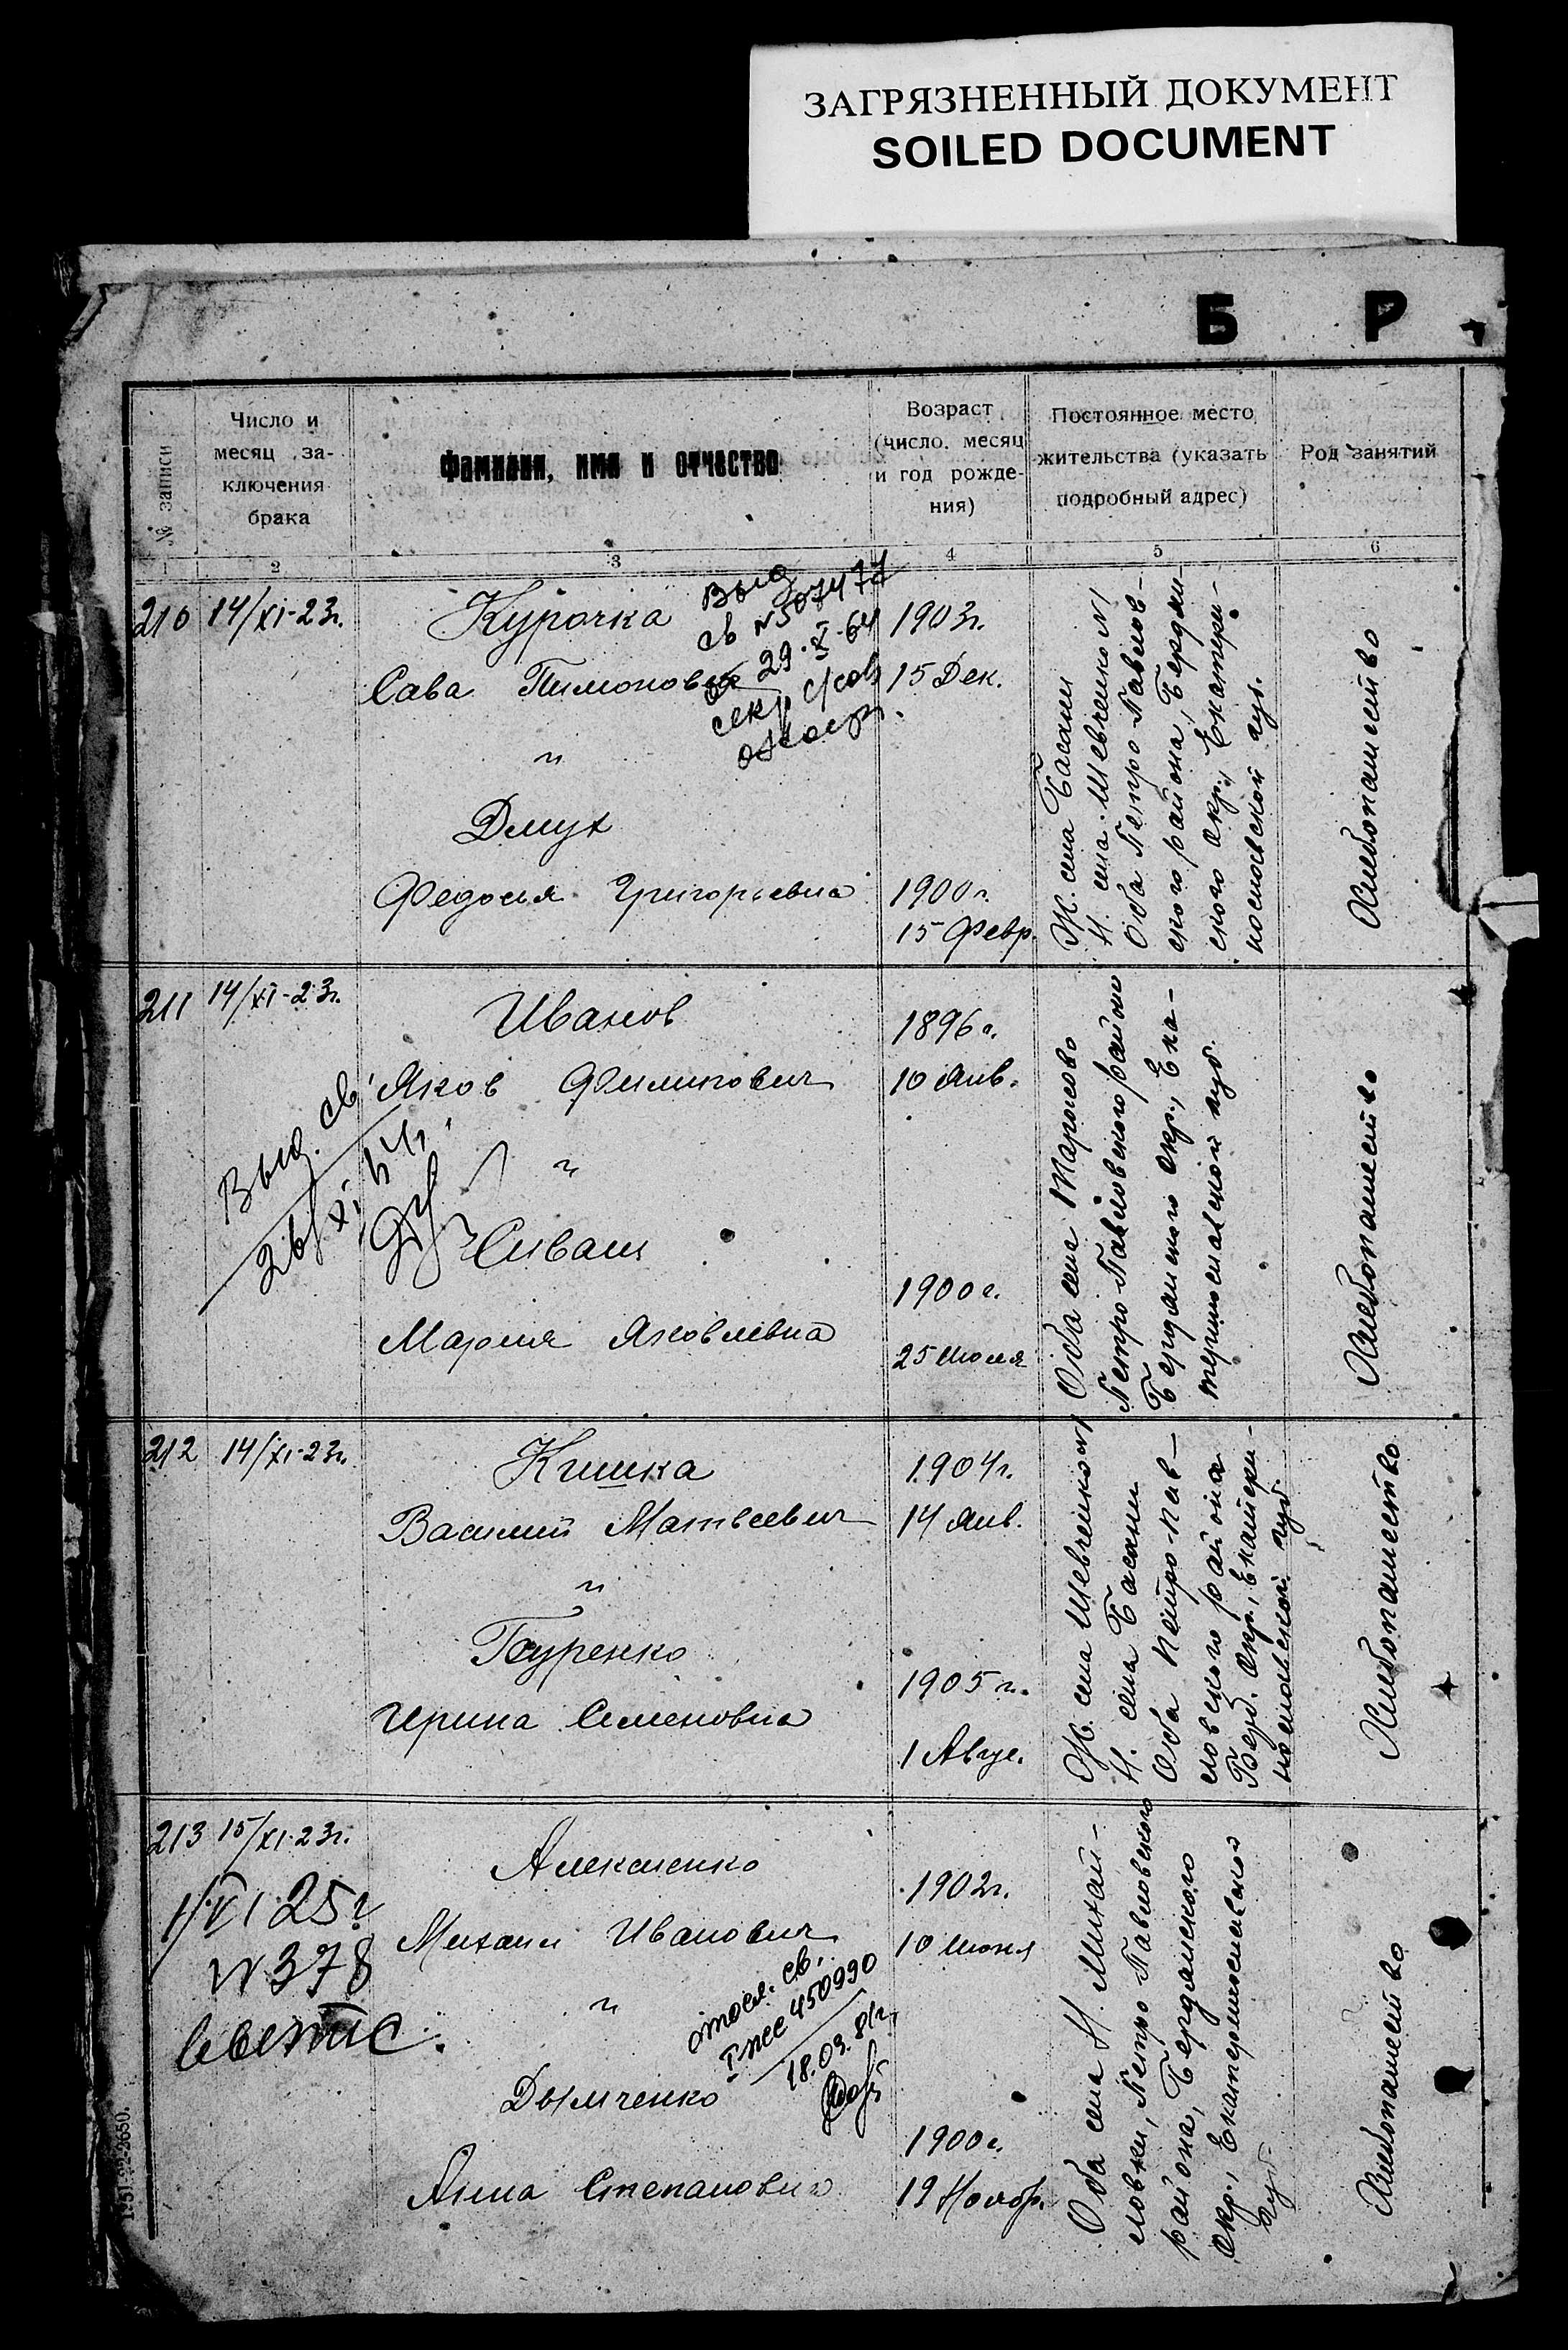 ЗАГРЯЗНЕННЫЙ ДОКУМЕНТ
SOILED DOCUMENT
Б Р
№ записи
Число и
месяц за-
ключения
брака
Фамилия, имя и отчество
Возраст
(число. месяц
и год рожде-
ния)
Постоянное место
жительства (указать
подробный адрес)
Род занятий
1 2 3 4 5 6
210 14/XI-23г.
Курочка
Сава Пимонович
и
Дмух
Федосия Григорьевна
Выд
св N 507477
29·XI·64
секр с/сов
1903г.
15 Дек.
1900г.
15 Февр.
Ж. села Басани
Н. села Шевченко N1
Оба Петро Павлов-
ского района, Бердян-
ского окр., Екатери-
нославской губ.
Хлебопашество
211 14/XI-23г.
Иванов
Яков Филипович
и
Сиваш
Мария Яковлевна
Выд. св
26/XI 64г.
1896г.
10 Янв.
1900г.
25 Июля
Оба села Марьевко
Петро Павловского района
Бердянского окр., Ека-
теринославской губ.
Хлебопашество
212 14/XI-23г.
Кишка
Василий Матвеевич
и
Гауренко
Ирина Семеновна
1904г.
14 Янв.
1905г.
1 Авгус.
Ж. села Шевченково N1
Н. села Басани
Оба Петро-Пав-
ловского района
Берд. окр., Екатери-
нославской губ
Хлебопашество
213 15/XI-23г.
Алексеенко
Михаил Иванович
и
Дымченко
Анна Степановна
1/VI 25г
N 378
св.
450990
18.03.81г.
1902г.
10 Июня
1900г.
19 Ноябр.
Оба села Н. Михай-
ловки, Петро Павловского
района, Бердянского
окр., Екатеринославской
губ
Хлебопашество